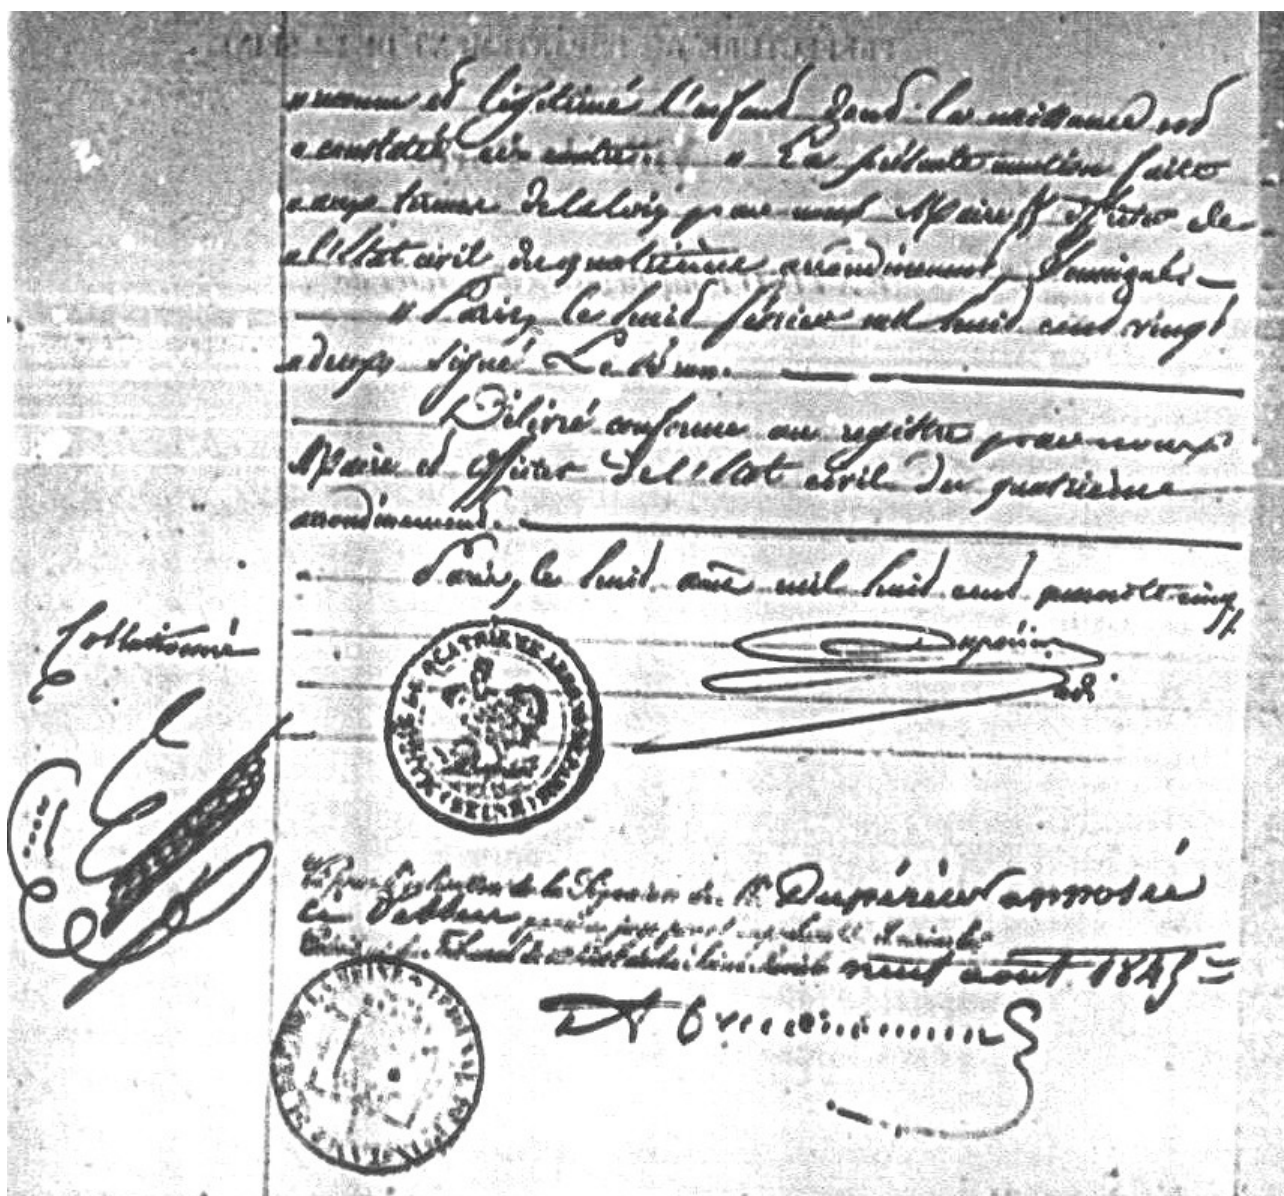 " reconnu et légitimé l'enfant dont la naissance est
" constatée ci-contre. " La présente mention faite
" aux termes de la loi, par nous Maire et officier de
" l'Etat civil du quatrième arrondissement, soussigné. —
" Paris, le huit février mil huit cent vingt
" deux, signé Le Brun.
Délivré conforme au registre par nous
Maire et officier de l'Etat civil du quatrième
arrondissement.
Paris, le huit août mil huit cent quarante cinq
Collationné
Dupérier
adt
MAIRIE DU QUATRIÈME ARRONDISSEMENT DE PARIS (SEINE)
Vu pour légalisation de la Signature de M. Dupérier apposée
ci
par
neuf août 1845
TRIBUNAL DE 1RE INSTANCE